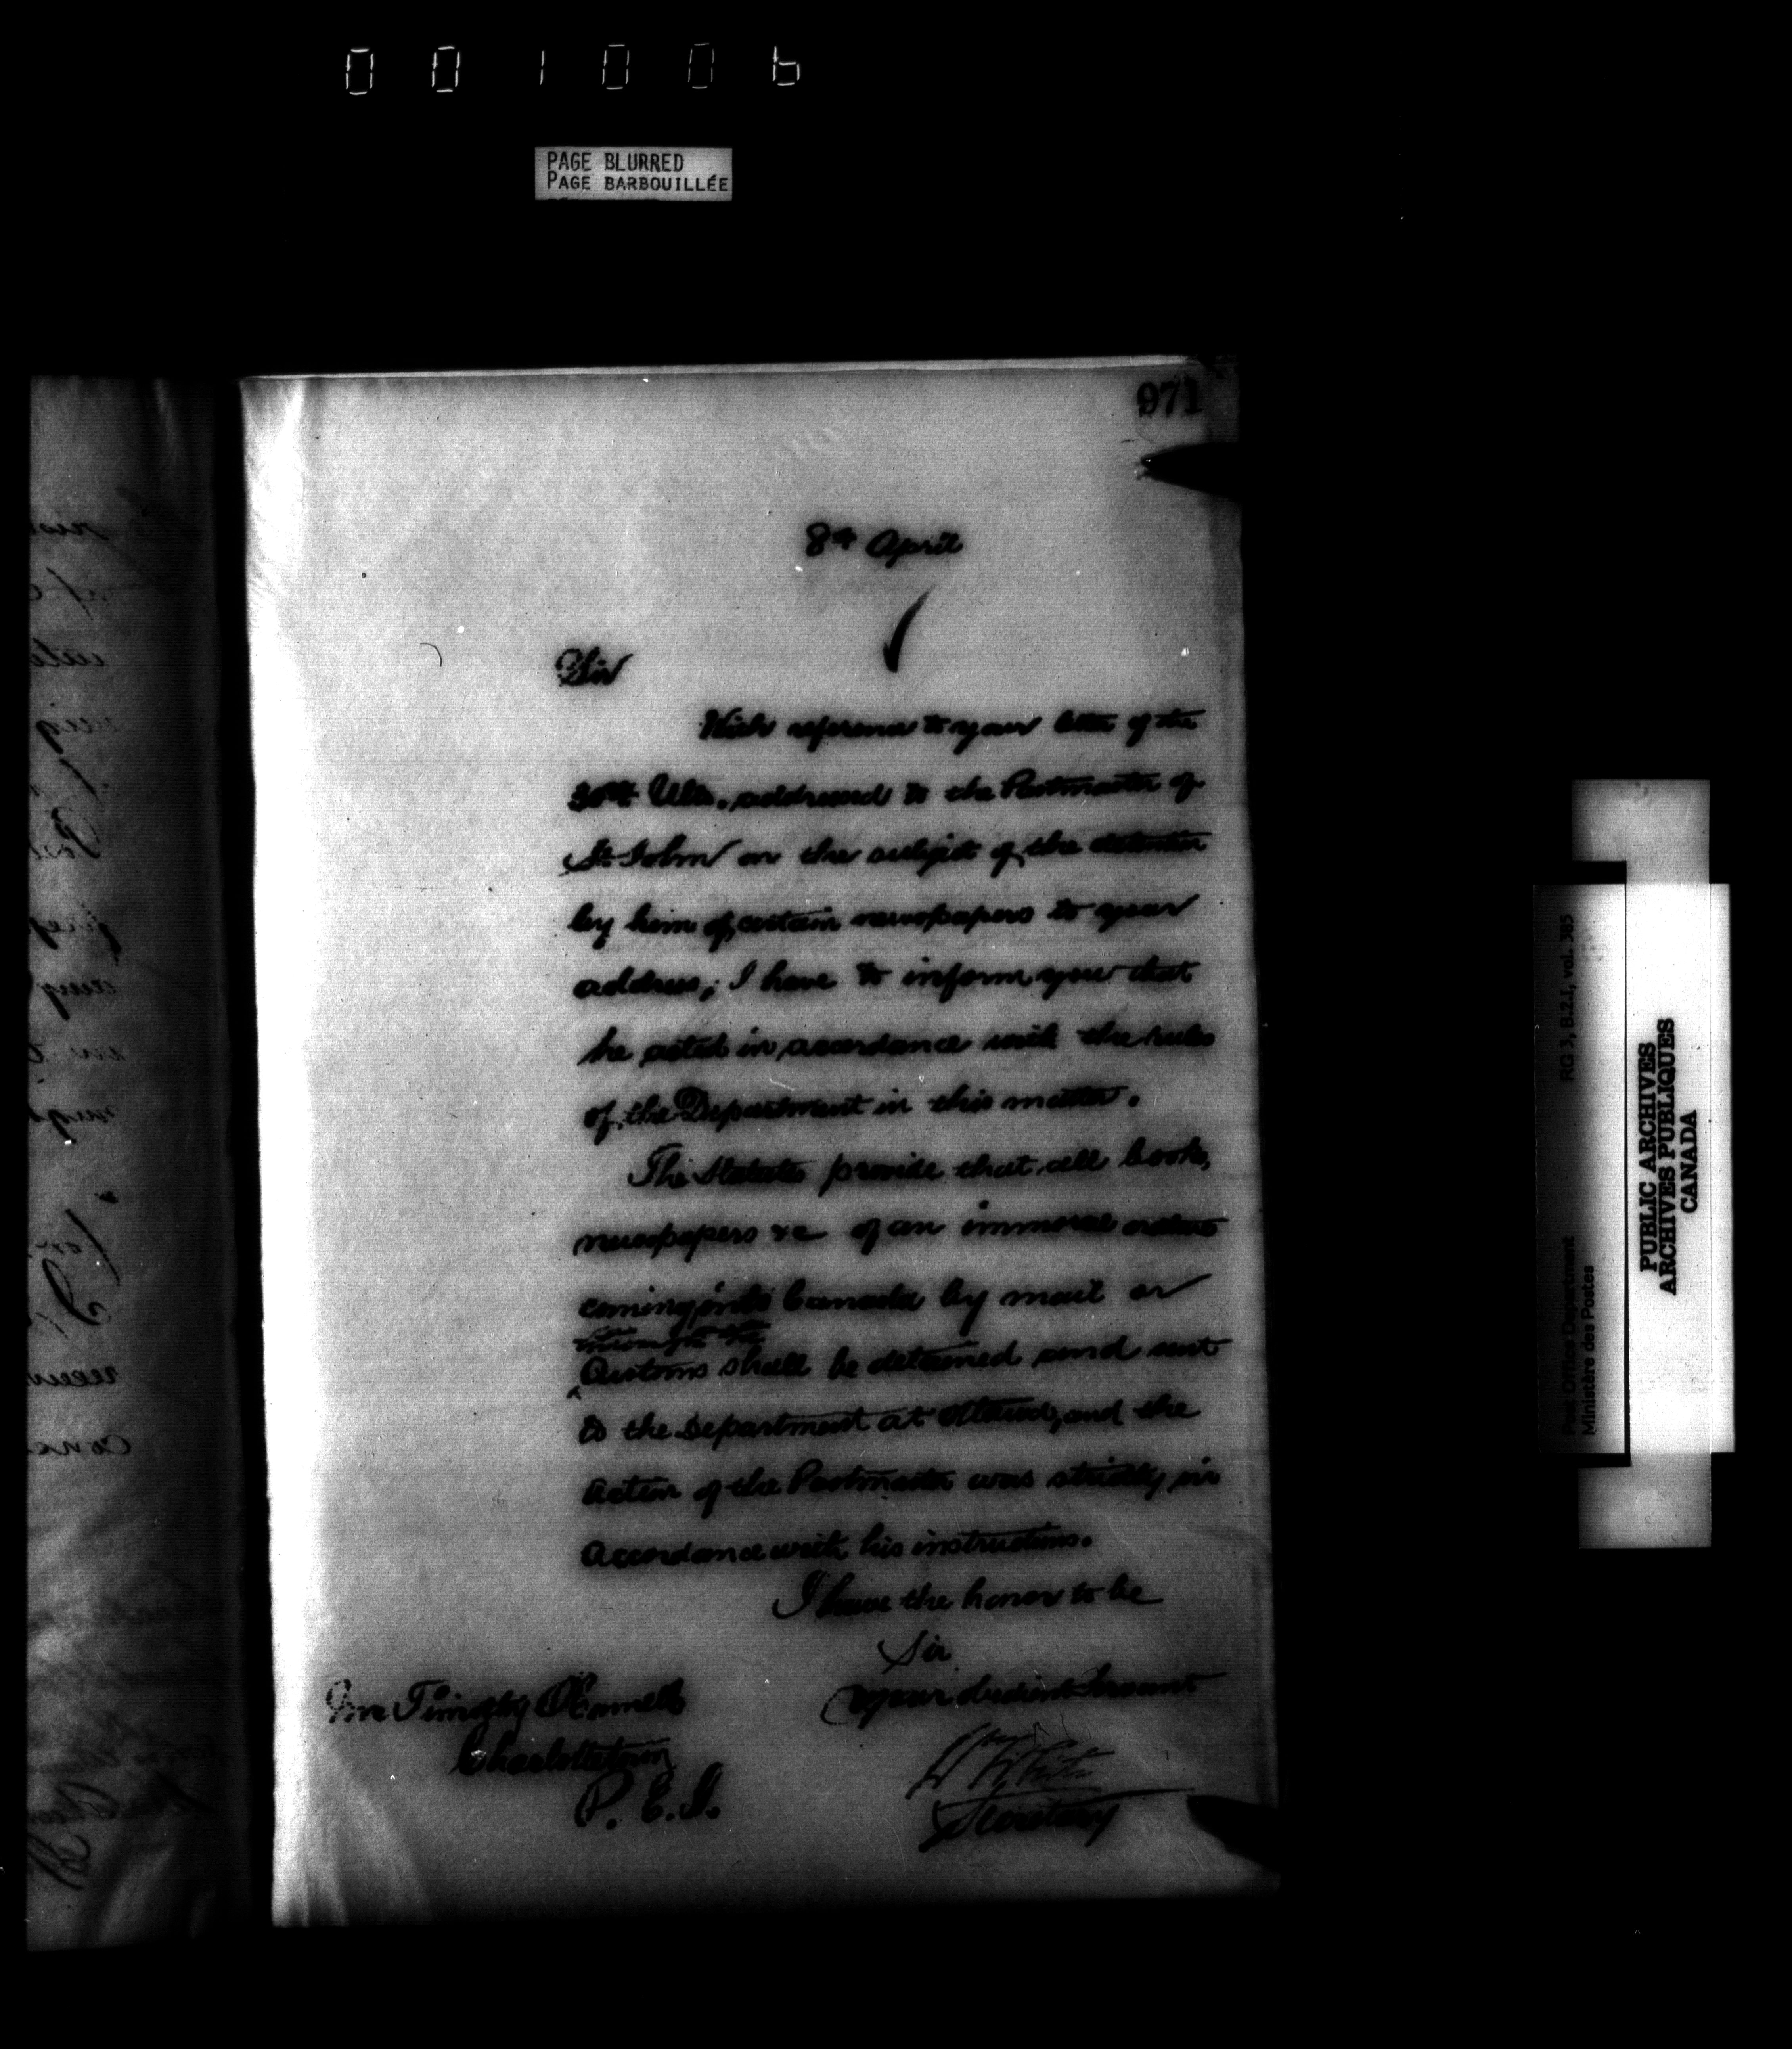 001006
PAGE BLURRED
PAGE BARBOUILLÉE
971
8th April
Sir
With reference to your letter of the
30th Ulto. addressed to the Postmaster of
St. John on the subject of the detention
by him of certain newspapers to your
address, I have to inform you that
he acted in accordance with the rules
of the Department in this matter.
The Statutes provide that all books,
newspapers &c of an immoral
coming into Canada by mail or
through the
Customs shall be detained and sent
to the Department at Ottawa, and the
action of the Postmaster was strictly in
accordance with his instructions.
I have the honor to be
Sir
Your obedient Servant
Wm White
Secretary
Mr Timothy O'Connell
Charlottetown
P. E. I.
Post Office Department RG 3, B.2.1, vol. 385
Ministère des Postes
PUBLIC ARCHIVES
ARCHIVES PUBLIQUES
CANADA